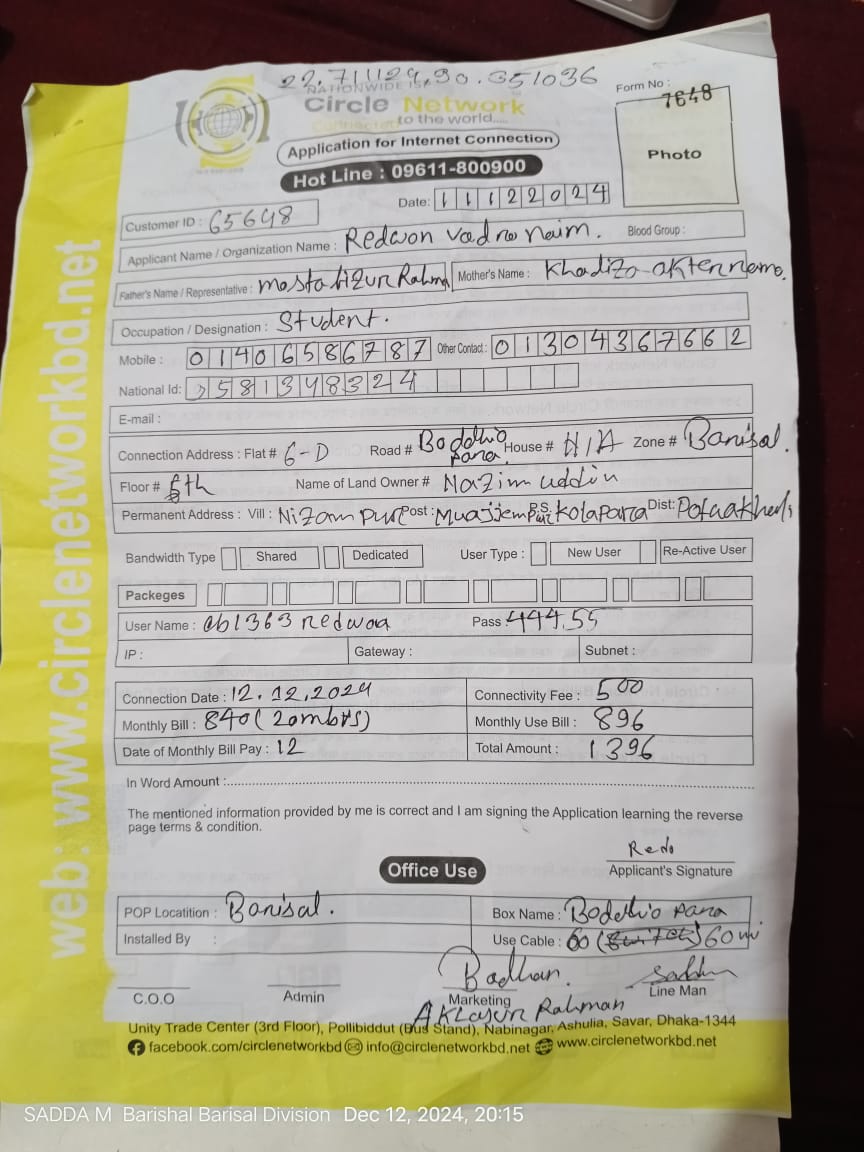 22.711129,90.351036
NATIONWIDE ISP
Circle Network
Connected to the world.....
Form No : 7648
Photo
Application for Internet Connection
Hot Line : 09611-800900
Date: 11122024
Customer ID : 65648
Applicant Name / Organization Name : Redwon naim. Blood Group :
Father's Name / Representative : Rahman Mother's Name : Khadiza akter
Occupation / Designation : Student.
Mobile : 01406586787 Other Contact : 01304367662
National Id: 581348324
E-mail :
Connection Address : Flat # 6-D Road # Boddhio para House # H/A Zone # Barisal.
Floor # 5th Name of Land Owner # Nazim uddin
Permanent Address : Vill : Nizam pur Post : P.S. Kolapara Dist:
Bandwidth Type Shared Dedicated User Type : New User Re-Active User
Packeges
User Name : cb1363 redwoa Pass : 444.55
IP : Gateway : Subnet :
Connection Date : 12.12.2024 Connectivity Fee : 500
Monthly Bill : 840 (20mbps) Monthly Use Bill : 896
Date of Monthly Bill Pay : 12 Total Amount : 1396
In Word Amount :
The mentioned information provided by me is correct and I am signing the Application learning the reverse
page terms & condition.
Redo
Applicant's Signature
Office Use
POP Locatition : Barisal. Box Name : Boddhio para
Installed By : Use Cable : 60 60 mi
Badhan. Saddam
C.O.O Admin Marketing Line Man
Rahman
Unity Trade Center (3rd Floor), Pollibiddut (Bus Stand), Nabinagar, Ashulia, Savar, Dhaka-1344
facebook.com/circlenetworkbd info@circlenetworkbd.net www.circlenetworkbd.net
web: www.circlenetworkbd.net
SADDA M Barishal Barisal Division Dec 12, 2024, 20:15